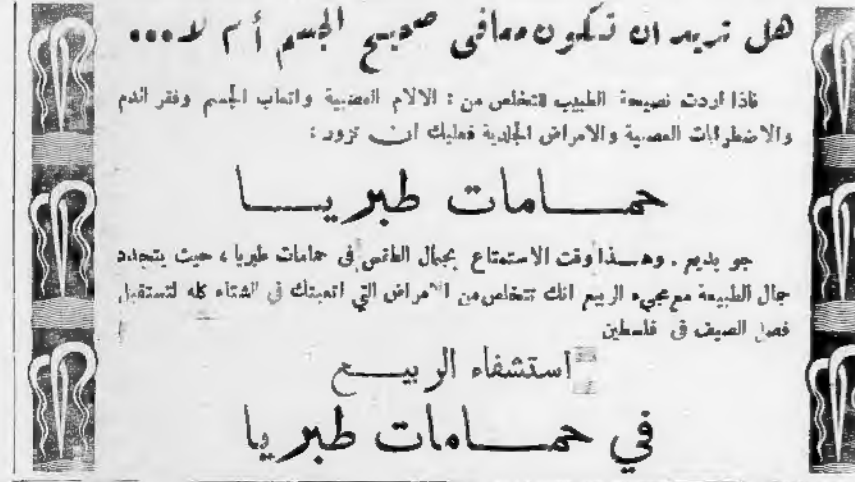 هل تريد ان تكون معافى صحيح الجسم أم لا...
فاذا اردت نصيحة الطبيب لتتخلص من : الالام العصبية واتعاب الجسم وفقر الدم
والاضطرابات العصبية والامراض الجلدية فعليك ان تزور :
حمامات طبريا
جو بديع . وهذا وقت الاستمتاع بجمال الطقس في حمامات طبريا ، حيث يتجدد
جمال الطبيعة مع مجيء الربيع انك تتخلص من الامراض التي اتعبتك في الشتاء كله لتستقبل
فصل الصيف في فلسطين
استشفاء الربيع
في حمامات طبريا